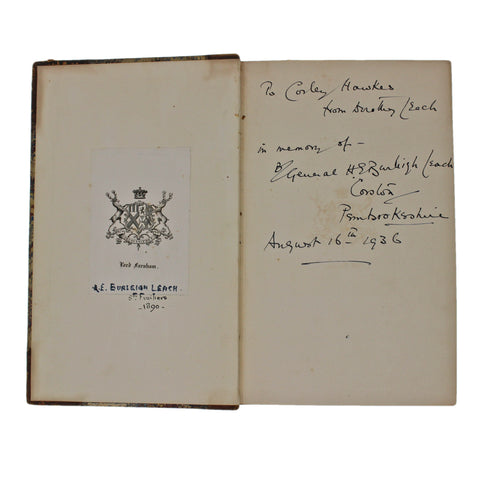 Lord Farnham.
H.E. BURLEIGH LEACH.
5th Fusiliers
-1890-
To Corley Hawkes
from Dorothy Leach
in memory of -
General H E Burleigh Leach
Corston
Pembrokeshire
August 16th 1936